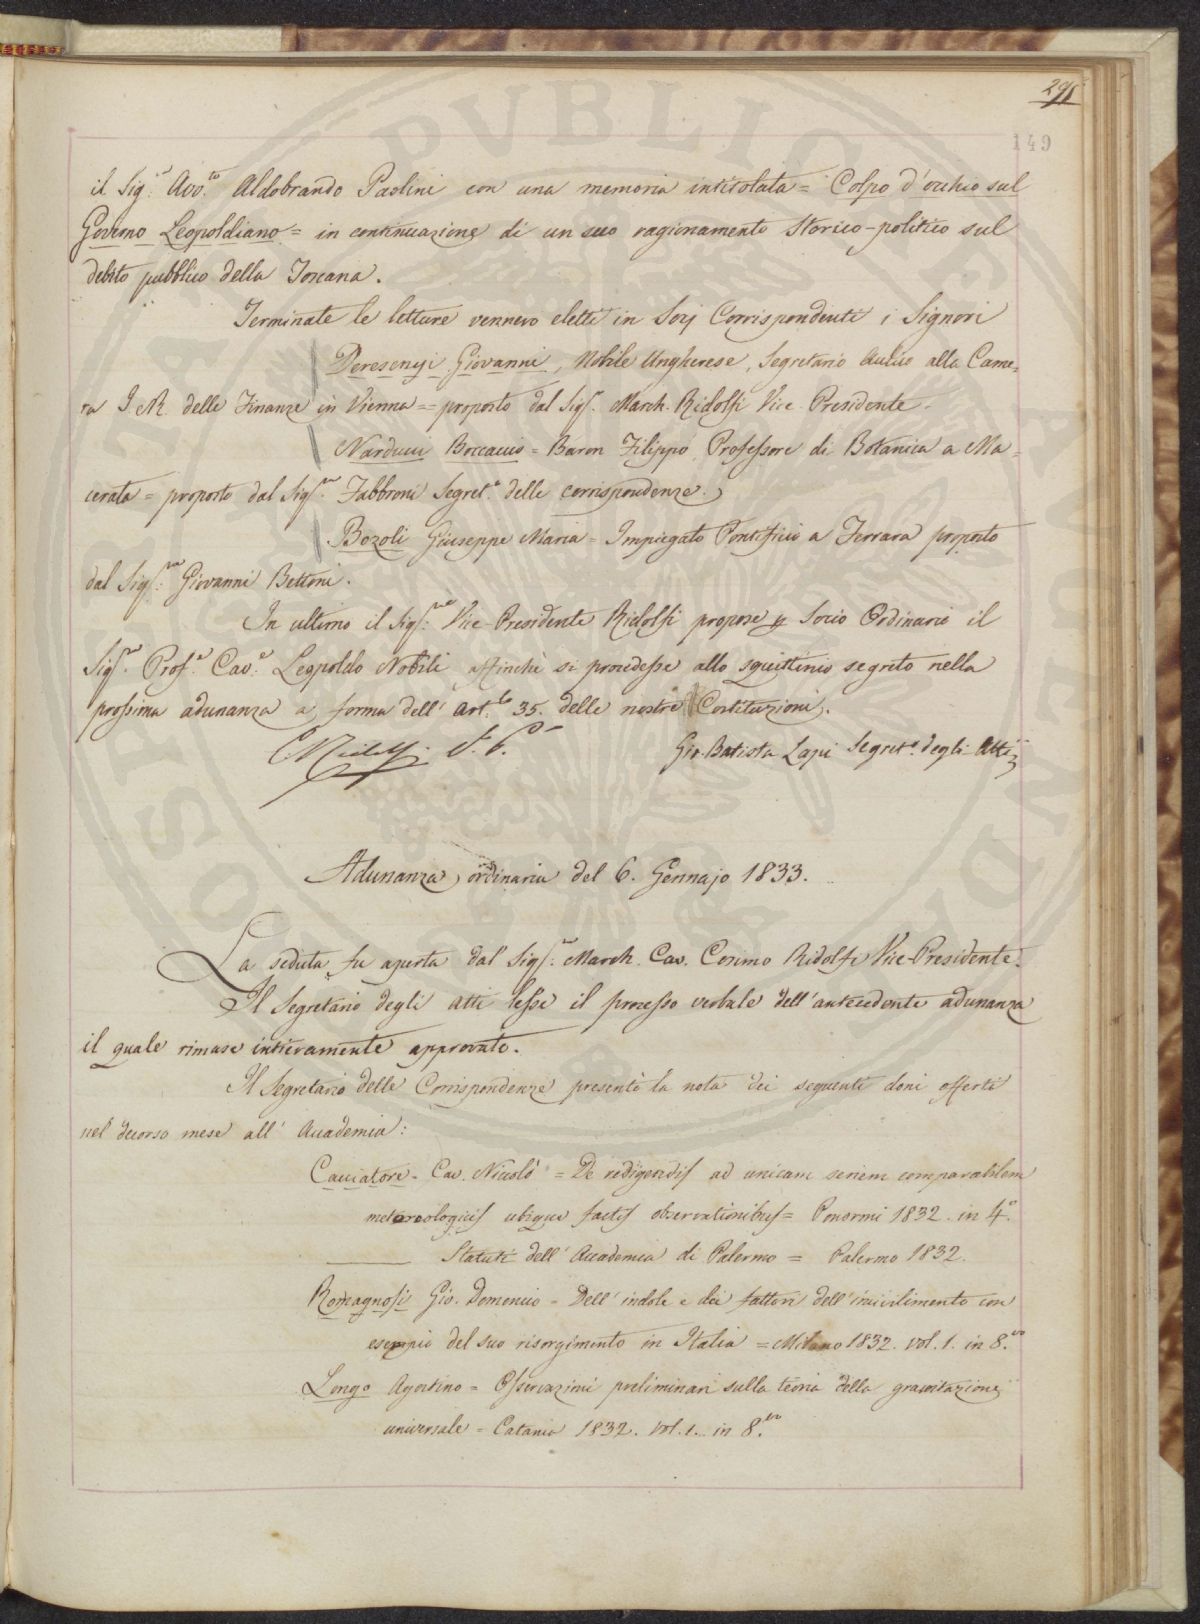 295
149
il Sig.r Avv.to Aldobrando Paolini con una memoria intitolata = Colpo d'occhio sul
Governo Leopoldiano = in continuazione di un suo ragionamento Storico-politico sul
debito pubblico della Toscana.
Terminate le letture vennero eletti in Socj Corrispondenti i Signori
Deresenyi Giovanni, Nobile Ungherese, Segretario Aulico alla Came-
ra I. R. delle Finanze in Vienna = proposto dal Sig.r March. Ridolfi Vice Presidente.
Narducci Boccaccio = Baron Filippo Professore di Botanica a Ma=
cerata = proposto dal Sig.re Fabbroni Segret.o delle corrispondenze.
Bozoli Giuseppe Maria = Impiegato Pontificio a Ferrara proposto
dal Sig.re Giovanni Bettoni.
In ultimo il Sig.re Vice-Presidente Ridolfi propose p Socio Ordinario il
Sig.re Prof.e Cav.e Leopoldo Nobili affinchè si procedesse allo squittinio segreto nella
prossima adunanza a forma dell' Art.lo 35. delle nostre Costituzioni.
C Ridolfi V. P.
Gio. Batista Lapi Segret.o degli Atti
Adunanza ordinaria del 6. Gennajo 1833.
La seduta fu aperta dal Sig.re March. Cav. Cosimo Ridolfi Vice-Presidente.
Il Segretario degli Atti lesse il processo verbale dell' antecedente adunanza
il quale rimase intieramente approvato.
Il Segretario delle Corrispondenze presentò la nota dei seguenti doni offerti
nel decorso mese all' Accademia:
Cacciatore. Cav. Niccolò = De redigendis ad unicam seriem comparabilem
meteorologicis ubique factis observationibus = Panormi 1832. in 4.o
Statuti dell' Accademia di Palermo = Palermo 1832.
Romagnosi Gio. Domenico = Dell' indole e dei fattori dell' incivilimento con
esempio del suo risorgimento in Italia = Milano 1832. vol. 1. in 8.vo
Longo Agostino = Osservazioni preliminari sulla teoria della gravitazione
universale = Catania 1832. vol. 1. in 8.vo